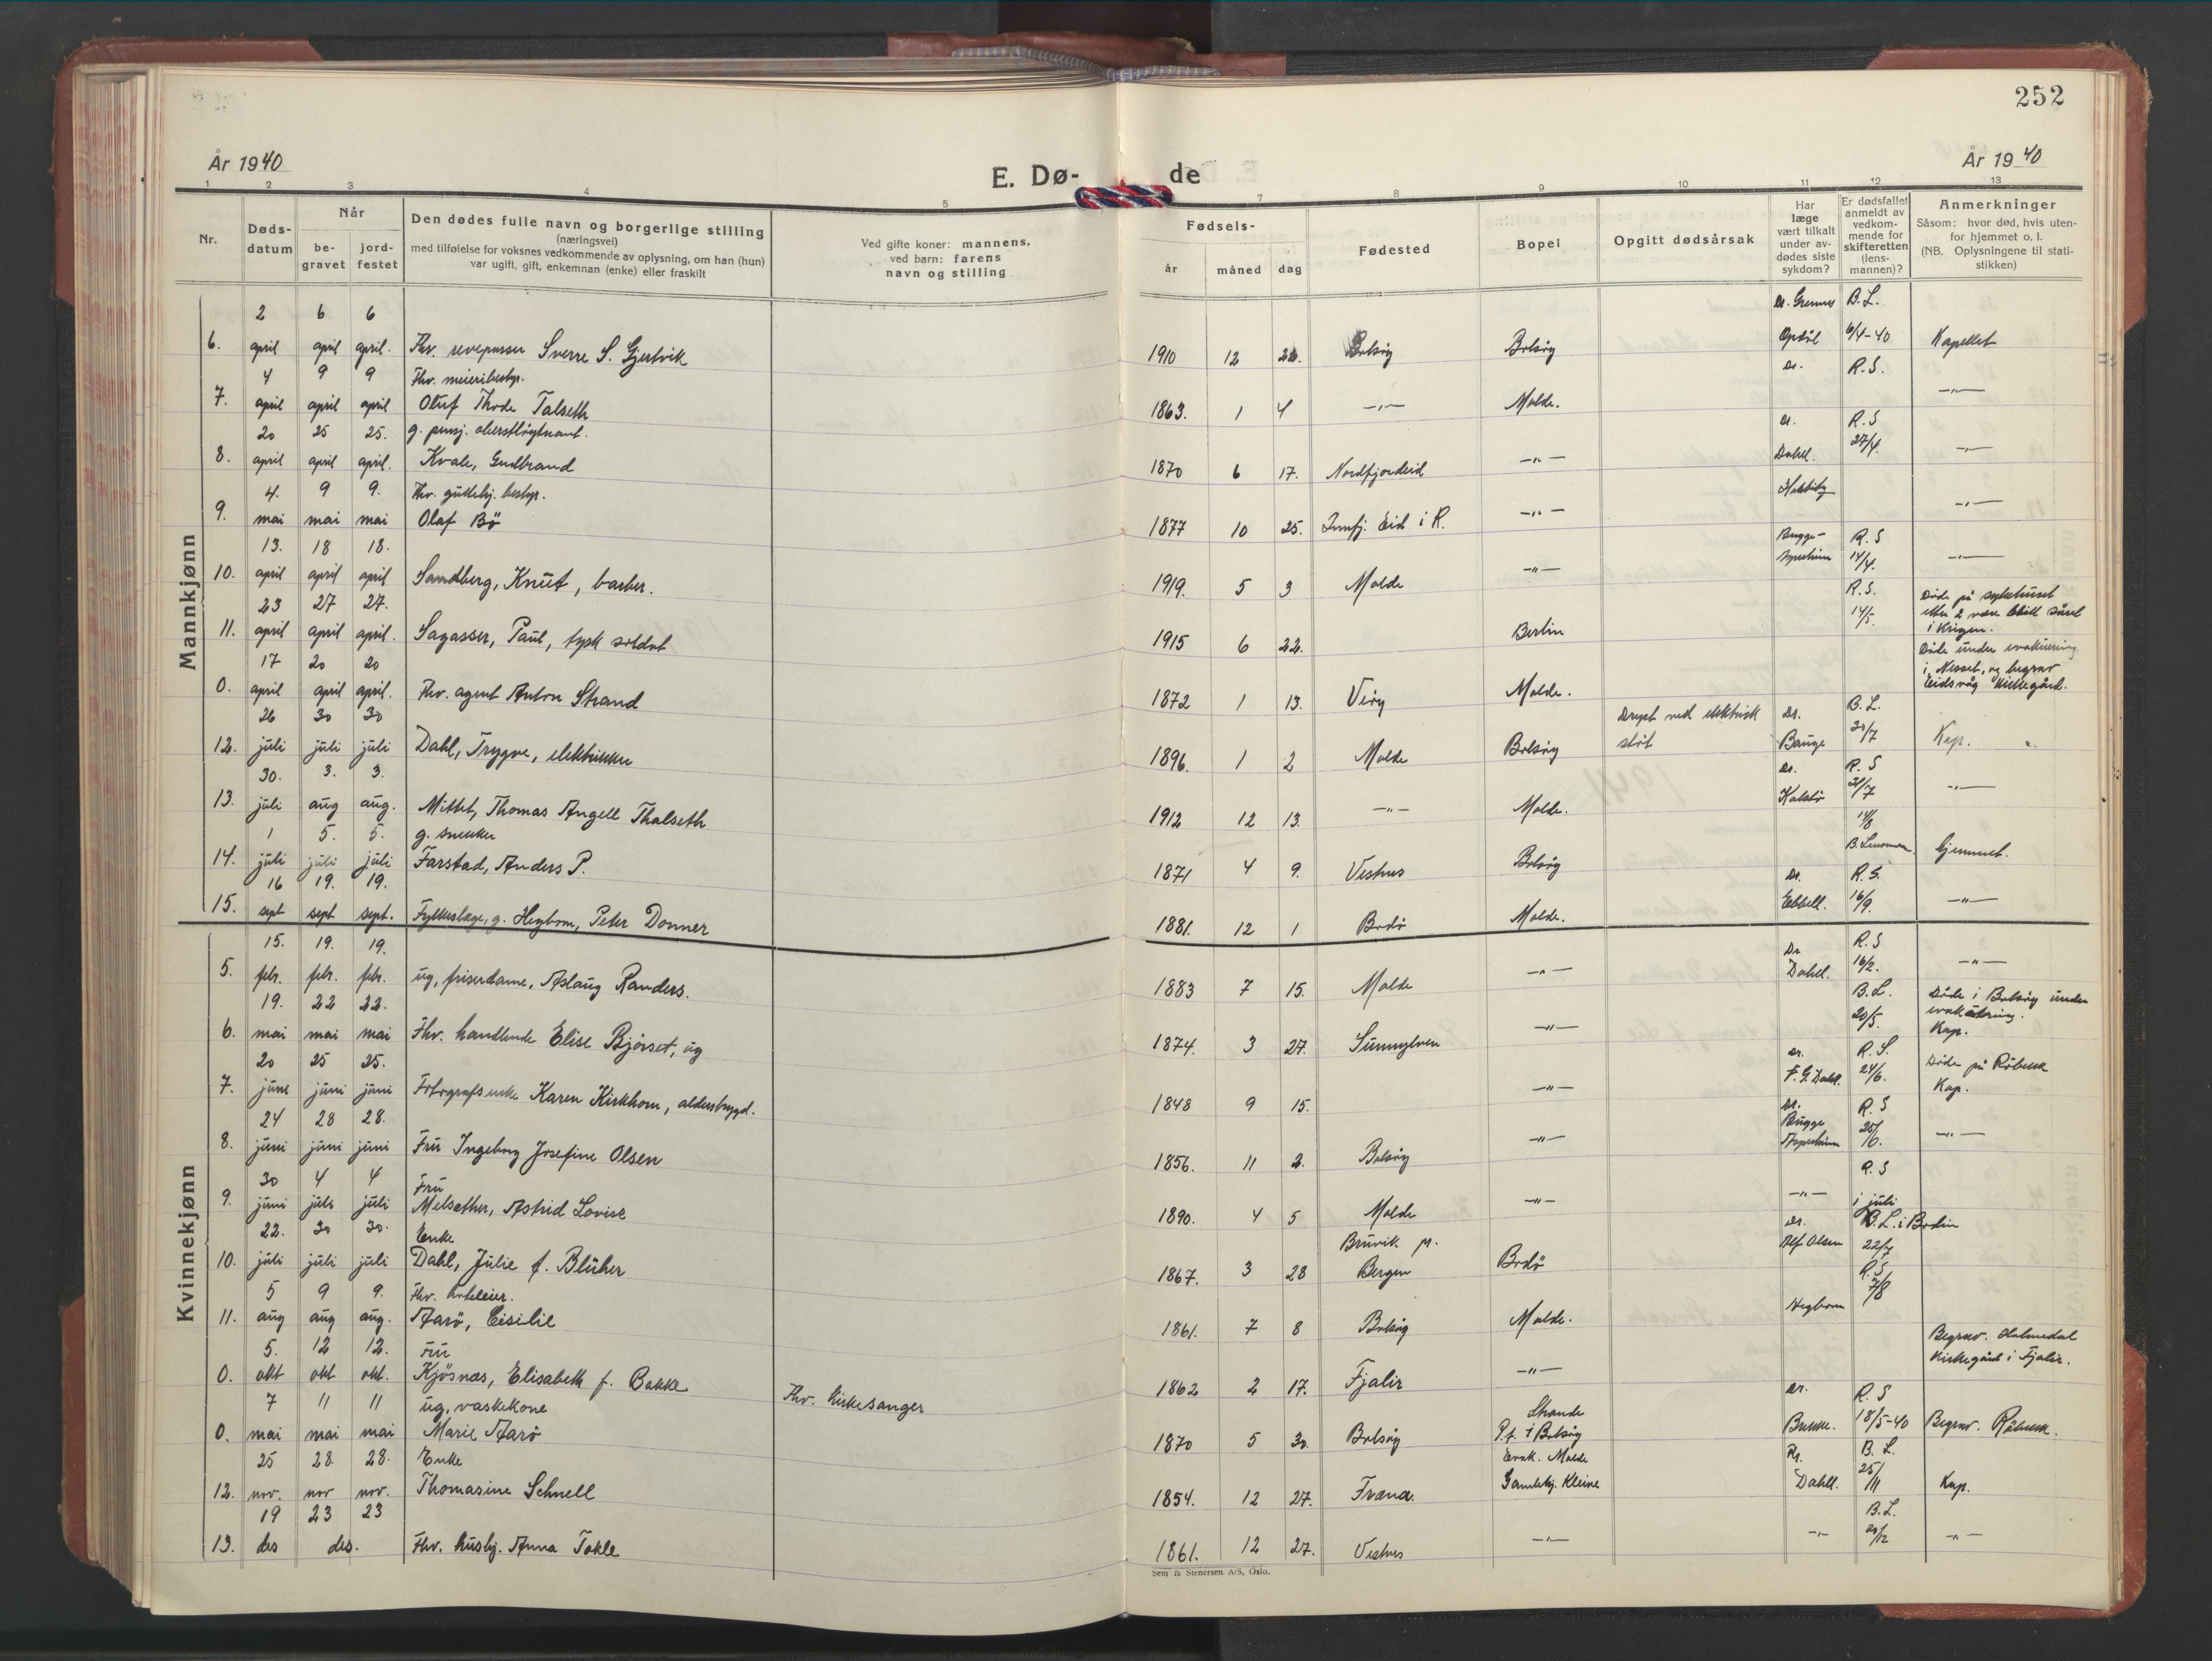 252
År 1940
E. Dø-
de
År 1940
1 2 3 4 5 7 8 9 10 11 12 13
Nr.
Døds-
datum
Når
be-
gravet
jord-
festet
Den dødes fulle navn og borgerlige stilling
(næringsvei)
med tilføielse for voksnes vedkommende av oplysning, om han (hun)
var ugift, gift, enkemnan (enke) eller fraskilt
Ved gifte koner: mannens,
ved barn: farens
navn og stilling
Fødsels-
år måned dag
Fødested
Bopel
Opgitt dødsårsak
Har
læge
vært tilkalt
under av-
dødes siste
sykdom?
Er dødsfallet
anmeldt av
vedkom-
mende for
skifteretten
(lens-
mannen)?
Anmerkninger
Såsom: hvor død, hvis uten-
for hjemmet o. l.
(NB. Oplysningene til stati-
stikken)
Mannkjønn
2 6 6 Dr. Grennes B. L.
6. april april april. Fhv. revepasser Sverre S. Gjertvik 1910 12 Bolsøy Bolsøy Opdøl 6/4-40 Kapellet
4 9 9 Fhv. meieribestyr. Dr. R. S.
7. april april april Oluf Thode Talseth 1863. 1 4 -"- Molde. -"-
20 25 25. g. pensj. oberstløytnant. Dr. R. S
8. april april april. Kvale, Gudbrand 1870 6 17. Nordfjordeid -"- Dahl. 27/4. -"-
4. 9 9. Fhv. guttehj. bestyr.
9. mai mai mai Olaf Bö 1877 10 25. Innfj. Eid i R. -"- -"-
13. 18 18. Bugge- R. S
10. april april april Sandberg, Knut, barber. 1919. 5 3 Molde -"- 14/4. -"-
23 27 27. R. S. Døde på sykehuset
11. april april april. Sagasser, Paul, tysk soldat 1915 6 22. Berlin 14/5. etter å være blitt såret
i krigen.
17 20 20 Døde under evakuering
0. april april april. Fhv. agent Anton Strand 1872 1 13. Veøy Molde. i Nesset, og begrav
Eidsvåg kirkegård.
26 30 30 Drept ved elektrisk Dr. B. L.
12. juli juli juli Dahl, Trygve, elektriker 1896. 1 2 Molde Bolsøy støt Bauge /7 Kap.
30. 3. 3. Dr. R. S
13. juli aug aug. Mittet, Thomas Angell Thalseth 1912 12 13. -"- Molde. Kalstø 31/7 -"-
1 5. 5. g. snekker
14. juli juli juli Farstad, Anders P. 1871 4 9. Vestnes Bolsøy B. Lensmann. Hjemmet.
16 19. 19. Dr. R. S.
15. sept sept sept. Fylkeslæge, g. Hegbom, Peter Donner 1881. 12 1 Bodö Molde. Ebbell. 16/9. -"-
Kvinnekjønn
15. 19. 19. Dr R. S
5. febr. febr. febr. ug, friserdame, Aslaug Randers. 1883 7 15. Molde -"- Dahl. 16/2. -"-
19. 22 22. B. L. Døde i Bolsøy under
6. mai mai mai Fhv. handlende Elise Bjørset, ug 1874. 3 27. Sunnylven -"- 20/5. evakuering.
Kap.
20 25 25. Dr. R. S. Døde på Röbekk
7. june juni juni Fotografs enke Karen Kirkhorn, alderstrygd. 1848 9 15. -"- F. G. Dahl. 24/6. Kap.
24 28 28. Dr. R. S
8. juni juni juni Fru Ingeborg Josefine Olsen 1856. 11 2. Bolsøy -"- Bugge 25/6. -"-
30 4 4 Fru R. S
9. juni juli juli Melsæther, Astrid Lovise 1890. 4 5 Molde -"- -"- i juli
22. 30 30. Enke Bruvik pr. Dr. B. L. i Bodin
10. juli juli juli Dahl, Julie f. Blüher 1867. 3 28 Bergen Bodö Alf Olsen 22/7
5 9 9. Fhv. hoteleier. R. S
11. aug aug aug. Aarö, Cesilie 1861. 7 8 Bolsøy Molde. Hegbom 7/8
5. 12 12. Fru Begrav. Holmedal
0. okt okt okt. Kjösnæs, Elisabeth f. Bakke Fhv. kirkesanger 1862 2 17. Fjalir -"- kirkegård i Fjalir.
7 11 11 ug, vaskekone Strande Dr. R. S
0. mai mai mai Marie Aarö 1870 5 30. Bolsøy P.t. i Bolsøy 18/5-40 Begrav. Röbekk.
25 28. 28. Enke Evak. Molde B. L.
12. nov. nov nov. Thomasine Schnell 1854. 12 27. Fræna. Gamlehj. Kleive Dahl. 25/11 Kap.
19 23 23 B. L.
13. des des. Fhv. husbj. Anna Tokle 1861. 12 27. Vestnes -"- -"- /12 -"-
Sem & Stenersen A/S, Oslo.